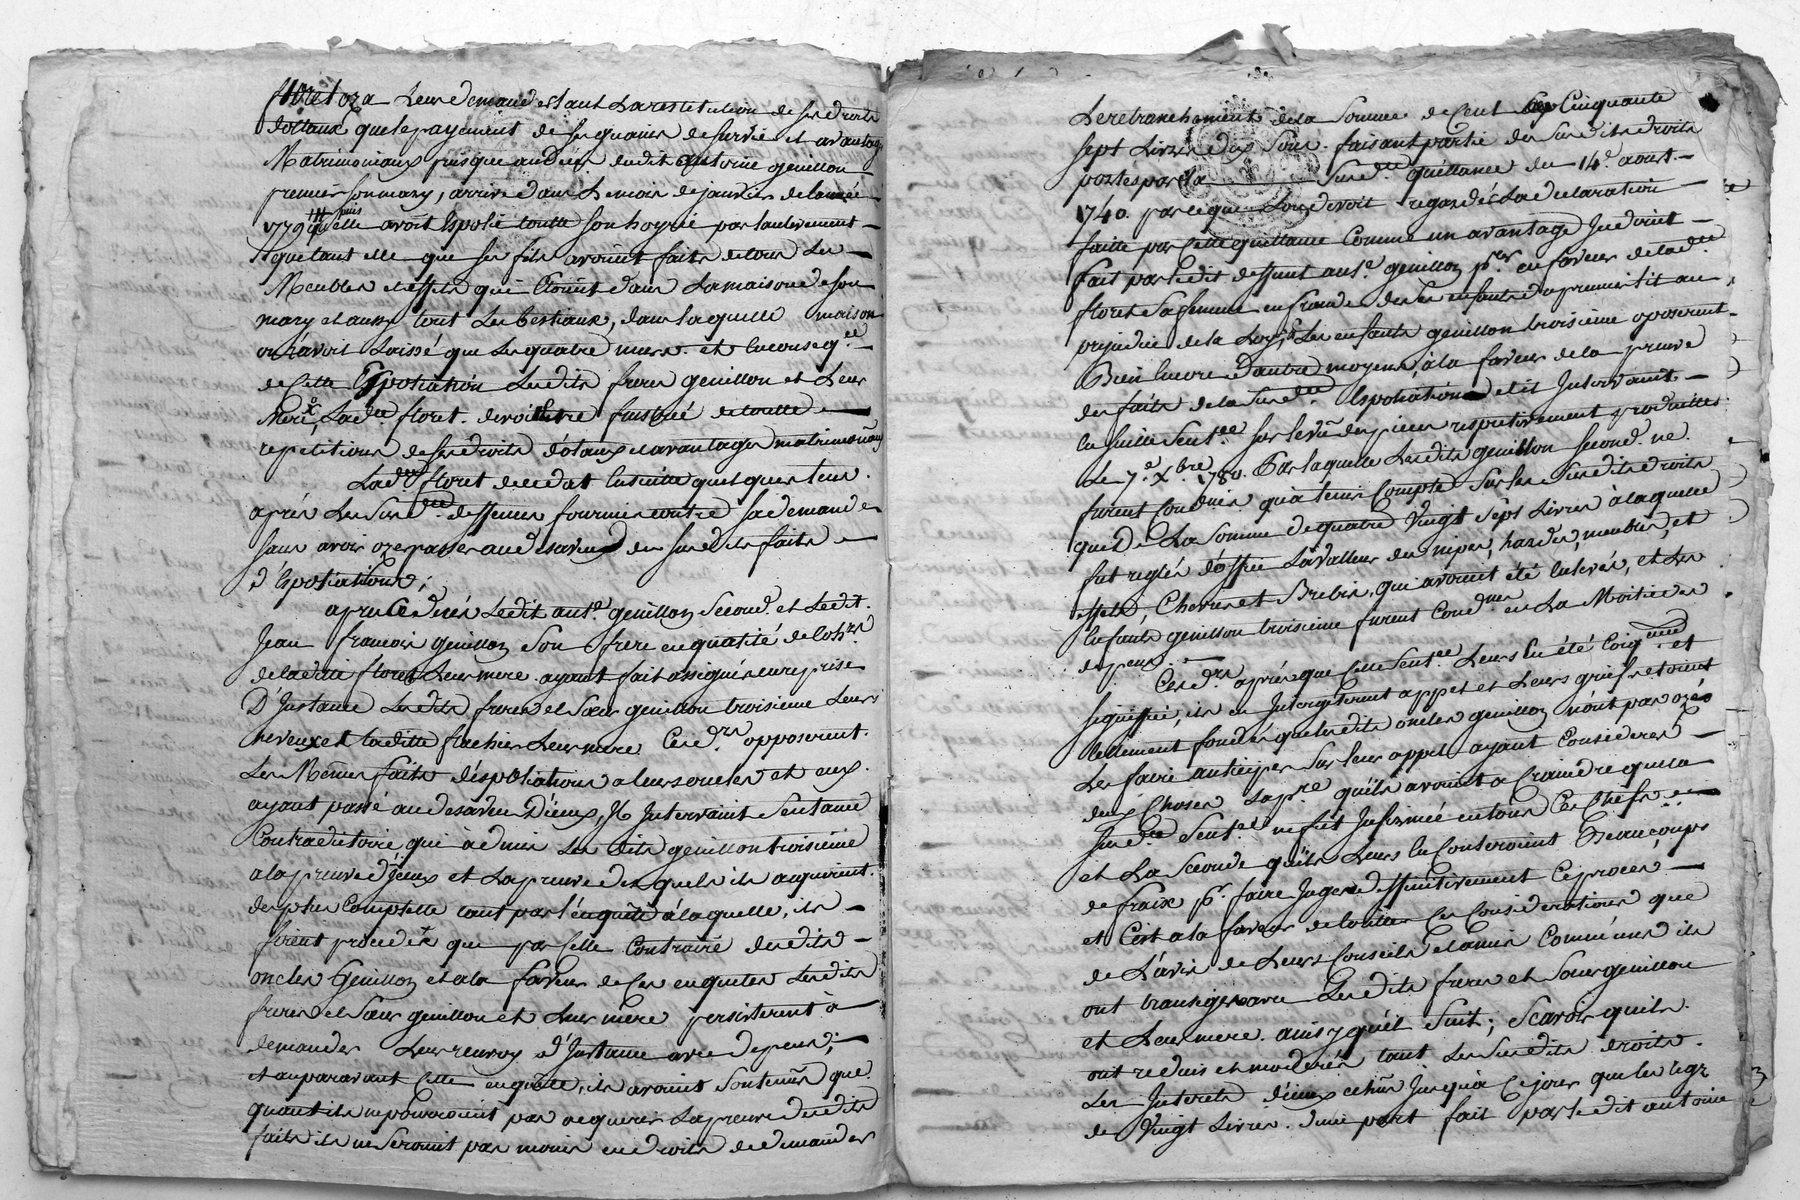 floret oza Leur demander tant La restitution de ses droits
dottaux que le payement de ses gains de survie et avantages
Matrimoniaux puisque au decès dudit antoine genillon
premier son mary, arrivé dans Le mois de janvier de l'année
1779 qu'elle avoit Espolié toutte son hoyrie par l'enlevement
que tant elle que ses fils avoint faits de tous Les
Meubles et effets qui Etoint dans La maison de son
mary et aussy tout Les bestiaux, dans laquelle maison
on n'avoit Laissé que Les quatre murs. et en conseq.ce
de Cette Espoliation Lesdits freres genillon et Leur
Mere, Lad.e floret. devoit etre frustrée de toutte
repetitions de ses droits dotaux et avantages matrimoniaux
Lad.e floret deceda en suitte quelques tems
après Les Susd. deffenses fournies contre sa demande
sans avoir oze passer au desaveu des susdits faits
d'Espoliations;
après Ce deces Ledit ant.e genillon Second. et Ledit
Jean francois genillon Son frere en qualité de Cohrs
de laditte floret Leur mere. ayant fait assigner en reprise
D'Instance Lesdits freres et Sœur genillon troisieme Leurs
neveux et laditte flachier Leur mere Cesd.rs opposerent.
Les Mêmes faits d'espoliations a leurs oncles et eux
ayant passé au desaveu D'iceux, Il Intervient Sentance
Contradictoire qui admis Les dits genillon troisieme
a la preuve d'iceux et La preuve desquels ils acquirent.
des plus Complette tant par l'enquête à laquelle, ils
firent proceder que par Celle Contraire desdits
oncles Genillon et a la faveur de Ces enquetes Lesdits
freres et Sœur genillon et Leur mere persisterent à
demander Leur renvoy d'Instance avec depens;
et auparavant Cette enquête, ils avoint Soutenus que
quant ils ne pourroint pas acquerir La preuve desdits
faits ils ne Seroint pas moins en droits de demander
Le retranchement de la Somme de Cent Cinquante
sept Livres dix Sous faisant partie des Susdits droits
portes par la Susd.e quittance du 14.e aoust
1740. parceque Lon devoit regarder La declaration
faitte par Cette quittance Comme un avantage Indirect
fait par ledit deffunt ant.e genillon p.er en faveur de lad.e
floret Sa femme en fraude de Ses enfants du premier lit au
prejudice de la Loy, Les enfants genillon troisieme oposerent
Bien encore d'autres moyens à la faveur de la preuve
des faits de la Susd.e Espoliation et il Intervint
en Suitte Sent.ce sur le vu des pieces respectivement produittes
Le 7.e Xbre 1780. Par laquelle Lesdits genillon Second. ne
furent Cond.nés qu'a tenir Compte Sur les Susdits droits
que de La Somme de quatre Vingt Sept Livres à laquelle
fut reglée d'office La Valleur des nipes, hardes, meubles, et
effets, Chevres et Brebis, qui avoint été Enlevés, et Les
Enfants genillon troisieme furent Cond.nés en La Moitié des
depens.
Cesd.rs après que Cette Sent.ce Leurs en été Coig.née et
signiffiée, ils en Interjetterent appel et Leurs griefs etoint
tellement fondés que lesdits oncles genillon n'ont pas ozé
Les faire anticiper Sur leur appel ayant Considerer
deux Choses La p.re qu'ils avoint a Craindre que la
Susd.e Sent.ce ne fut Infirmée en tous Ces Chefs
et La Seconde qu'ils Leurs en Couteroint Beaucoups
de fraix p.r faire Juger deffinitivement Ce proces
et C'est a la faveur de touttes Ces Considerations que
de L'avis de Leurs Conseils et amis communs ils
ont transiger avec Lesdits freres et Sœur genillon
et Leur mere. ainsy qu'il Suit; Scavoir qu'ils
ont reduis et moderés tant Les Susdits droits.
Les Interets d'iceux echus Jusqu'a Ce jour que les legs
de Vingt Livres. d'une part fait par ledit antoine